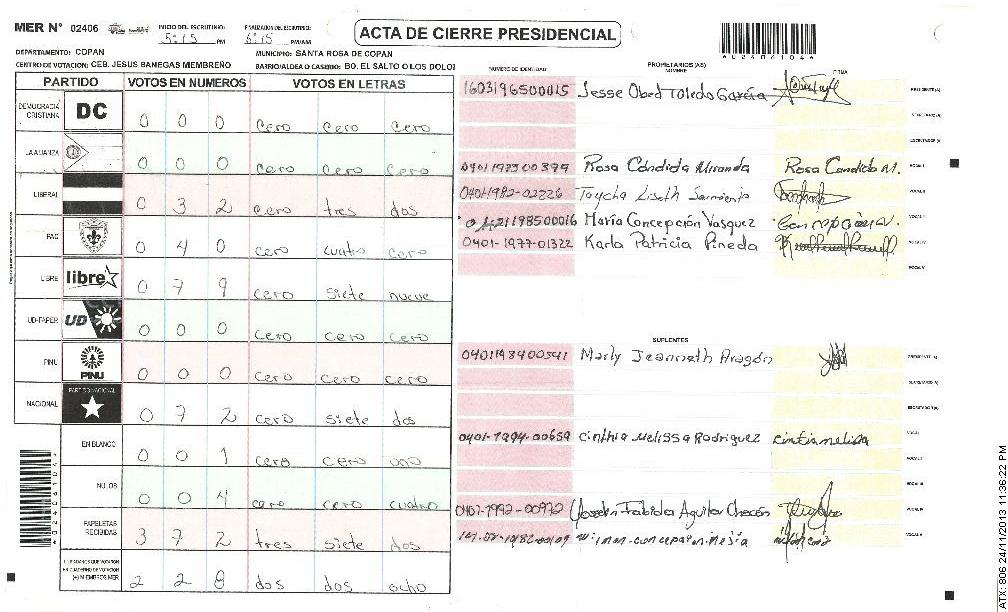 MER N° 02406
INICIO DEL ESCRUTINIO: 5:15 PM
FINALIZACION DEL ESCRUTINIO: 6:15 PM/AM
ACTA DE CIERRE PRESIDENCIAL
DEPARTAMENTO: COPAN
MUNICIPIO: SANTA ROSA DE COPAN
CENTRO DE VOTACION: CEB. JESUS BANEGAS MEMBREÑO
BARRIO/ALDEA O CASERIO: BO. EL SALTO O LOS DOLOI
PARTIDO VOTOS EN NUMEROS VOTOS EN LETRAS
DEMOCRACIA CRISTIANA DC 0 0 0 cero cero cero
LA ALIANZA 0 0 0 cero cero cero
LIBERAL 0 3 2 cero tres dos
PAC 0 4 0 cero cuatro cero
LIBRE libre 0 7 9 cero siete nueve
UD-FAPER UD 0 0 0 cero cero cero
PINU PINU 0 0 0 cero cero cero
NACIONAL PARTIDO NACIONAL 0 7 2 cero siete dos
EN BLANCO 0 0 1 cero cero uno
NULOS 0 0 4 cero cero cuatro
PAPELETAS RECIBIDAS 3 7 2 tres siete dos
CIUDADANOS QUE VOTARON EN CUADERNO DE VOTACION (+) MIEMBROS MER 2 2 8 dos dos ocho
NUMERO DE IDENTIDAD
PROPIETARIOS (AS)
NOMBRE
FIRMA
1603196500015 Jesse Obed Toledo García PRESIDENTE (A)
SECRETARIO (A)
ESCRUTADOR (A)
0401197300399 Rosa Candida Miranda Rosa Candida M. VOCAL I
0401-1982-02226 Lizeth Sarmiento VOCAL II
María Concepción Vasquez VOCAL III
0401-1977-01322 Karla Patricia Pineda VOCAL IV
VOCAL V
SUPLENTES
Marly Jeanneth Aragón PRESIDENTE (A)
SECRETARIO (A)
ESCRUTADOR (A)
0401-1994-00659 Cinthia Melissa Rodriguez cintia melisa VOCAL I
VOCAL II
VOCAL III
0401-1992-00972 Aguilar Chacón VOCAL IV
VOCAL V
*02406104*
*02406104*
ATX: 806 24/11/2013 11:36:22 PM